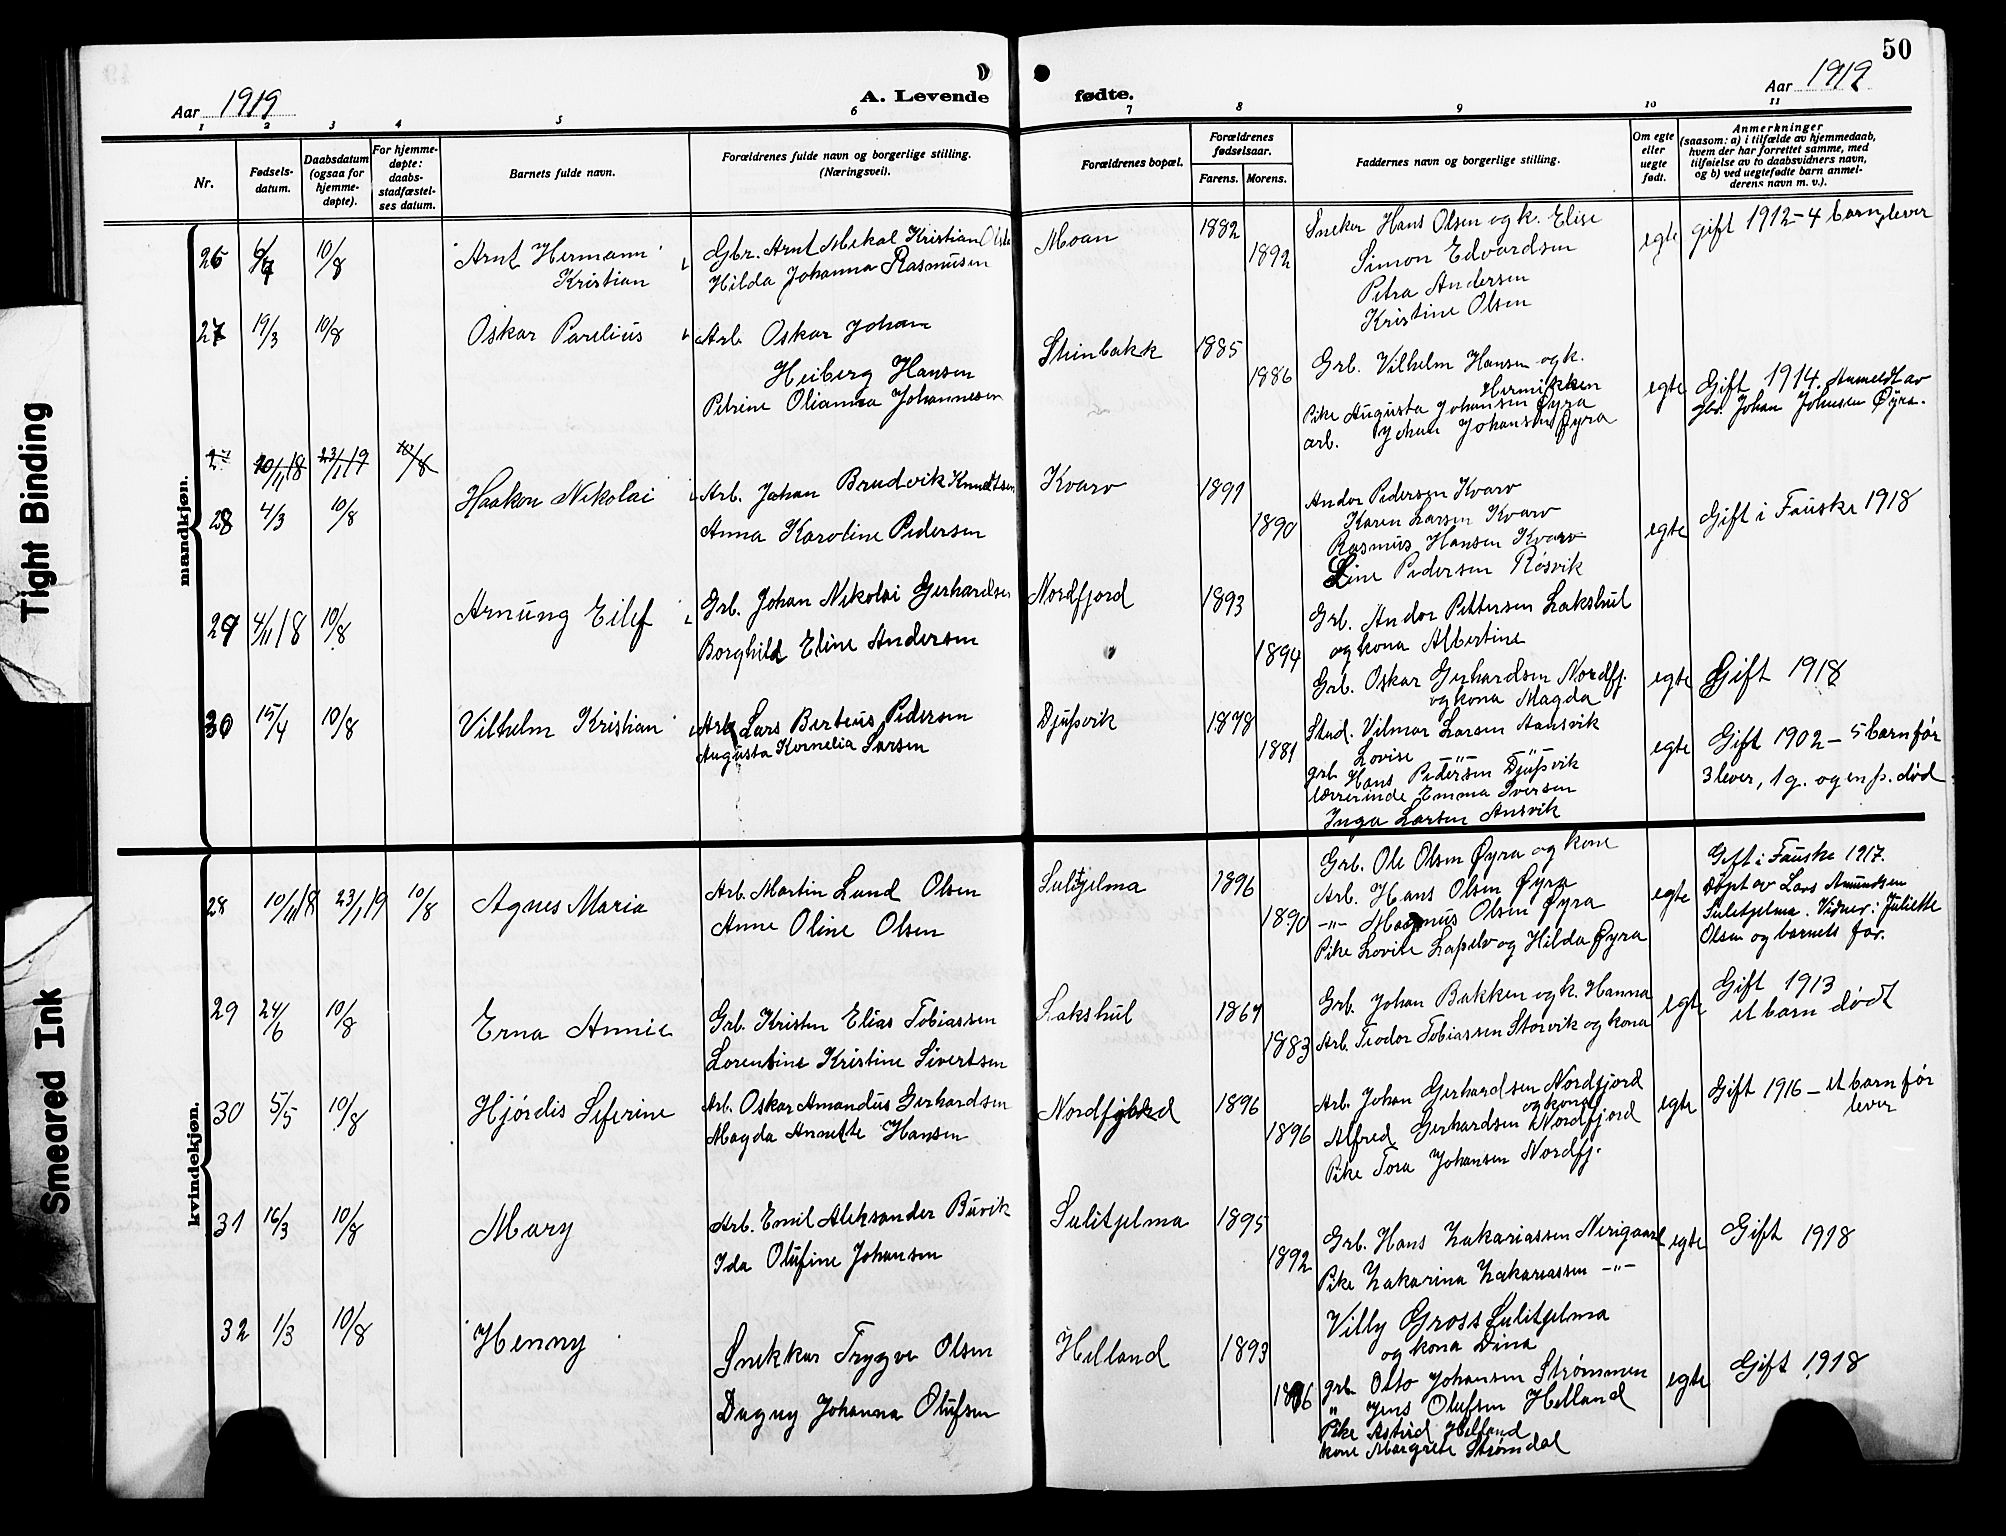 Tight Binding
Smeared Ink
50
Aar 1919
A. Levende
fødte.
Aar 1919
1 2 3 4 5 6 7 8 9 10 11
Nr.
Fødsels-
datum.
Daabsdatum
(ogsaa for
hjemme-
døpte).
For hjemme-
døpte:
daabs-
stadfæstel-
ses datum.
Barnets fulde navn.
Forældrenes fulde navn og borgerlige stilling.
(Næringsvei).
Forældrenes bopæl.
Forældrenes
fødselsaar.
Farens. Morens.
Faddernes navn og borgerlige stilling.
Om egte
eller
uegte
født.
Anmerkninger
(saasom: a) i tilfælde av hjemmedaab,
hvem der har forrettet samme, med
tilføielse av to daabsvidners navn,
og b) ved uegtefødte barn anmel-
derens navn m. v.).
mandkjøn.
26 10/8
Arnt Hermann
Kristian
Gbr. Arnt Mekal Kristian
Hilda Johanna Rasmusen
Moan
1882
1892
Sneker Hans Olsen og k. Elise
Simon Edvardsen
Petra Andersen
Kristine Olsen
egte
gift 1912 - 4 barn lever
27 19/3 10/8
Oskar Parelius
Arb. Oskar Johan
Heiberg Hansen
Petrine Olianna Johannesen
Stenbakk
1885
1886
Grb. Vilhelm Hansen og k.
Hermikken
Pike Augusta Johansen Øyra
arb. Johan Johansen Øyra
egte
Gift 1914. Anmeldt av
gbr. Johan Johnsen Øyra.
27 10/11 18 23/1 19 10/8
28 4/3 10/8
Haakon Nikolai
Arb. Johan Brudvik Knudtsen
Anna Karoline Pedersen
Kvarv
1891
1890
Andor Pedersen Kvarv
Karen Larsen Kvarv
Rasmus Hansen Kvarv
Line Pedersen Røsvik
egte
Gift i Fauske 1918
29 4/11 18 10/8
Arnung Eilef
Grb. Johan Nikolai Gerhardsen
Borghild Eline Andersen
Nordfjord
1893
1894
Grb. Andor Pettersen Lakshul
og kona Albertine
Grb. Oskar Gerhardsen Nordfj.
og kona Magda
egte
Gift 1918
30 15/4 10/8
Vilhelm Kristian
Arb. Lars Berteus Pedersen
Augusta Kornelia Larsen
Djupvik
1878
1881
Stud. Vilmar Larsen Aansvik
Lovise -"-
grb. Hans Pedersen Djupvik
lærerinde Emma Iversen
Inga Larsen Ansvik
egte
Gift 1902 - 5 barn før
3 lever, 1 g. og en p. død
kvindekjøn.
28 10/11 18 23/1 19 10/8
Agnes Maria
Arb. Martin Lund Olsen
Anne Oline Olsen
Sulitjelma
1896
1890
Grb. Ole Olsen Øyra og kone
Arb. Hans Olsen Øyra
-"- Magnus Olsen Øyra
Pike Lovise Lapelv og Hilda Øyra
egte
Gift i Fauske 1917.
Døpt av Lars Amundsen
Sulitjelma. Vidner: Juliette
Olsen og barnets far.
29 24/6 10/8
Erna Annie
Grb. Kristen Elias Tobiassen
Lorentine Kristine Sivertsen
Lakshul
1867
1883
Grb. Johan Bakken og k. Hanna
Arb. Teodor Tobiassen Storvik og kona
egte
Gift 1913
et barn dødt
30 5/5 10/8
Hjördis Seferine
Arb. Oskar Amandus Gerhardsen
Magda Annette Hansen
Nordfjord
1896
1896
Arb. Johan Gerhardsen Nordfjord
og kone
Alfred Gerhardsen Nordfjord
Pike Tora Johansen Nordfj.
egte
Gift 1916 - et barn før
lever
31 16/3 10/8
Mary
Arb. Emil Aleksander Buvik
Ida Olufine Johansen
Sulitjelma
1895
1892
Grb. Hans Zakariassen Nerigaard
Pike Zakarina Zakariassen -"-
egte
Gift 1918
32 1/3 10/8
Henny
Snekker Trygve Olsen
Dagny Johanna Olufsen
Helland
1893
Villy Gross Sulitjelma
og kona Dina
grb. Otto Johansen Strømmen
" Jens Olufsen Helland
Pike Astrid Helland
kone Margrete Strømdal
egte
Gift 1918